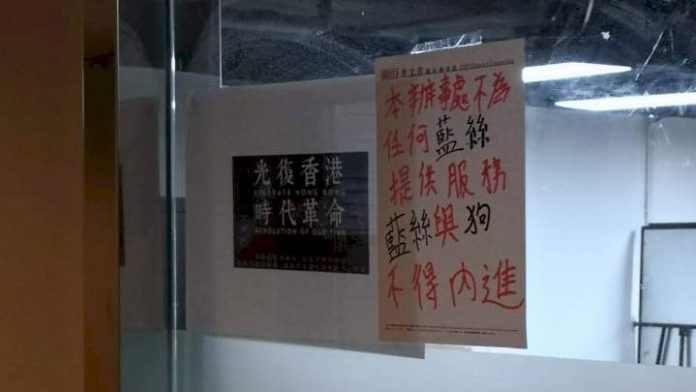 光復香港
LIBERATE HONG KONG
時代革命
REVOLUTION OF OUR TIME
本辦事處不為
任何藍絲
提供服務
藍絲與狗
不得內進